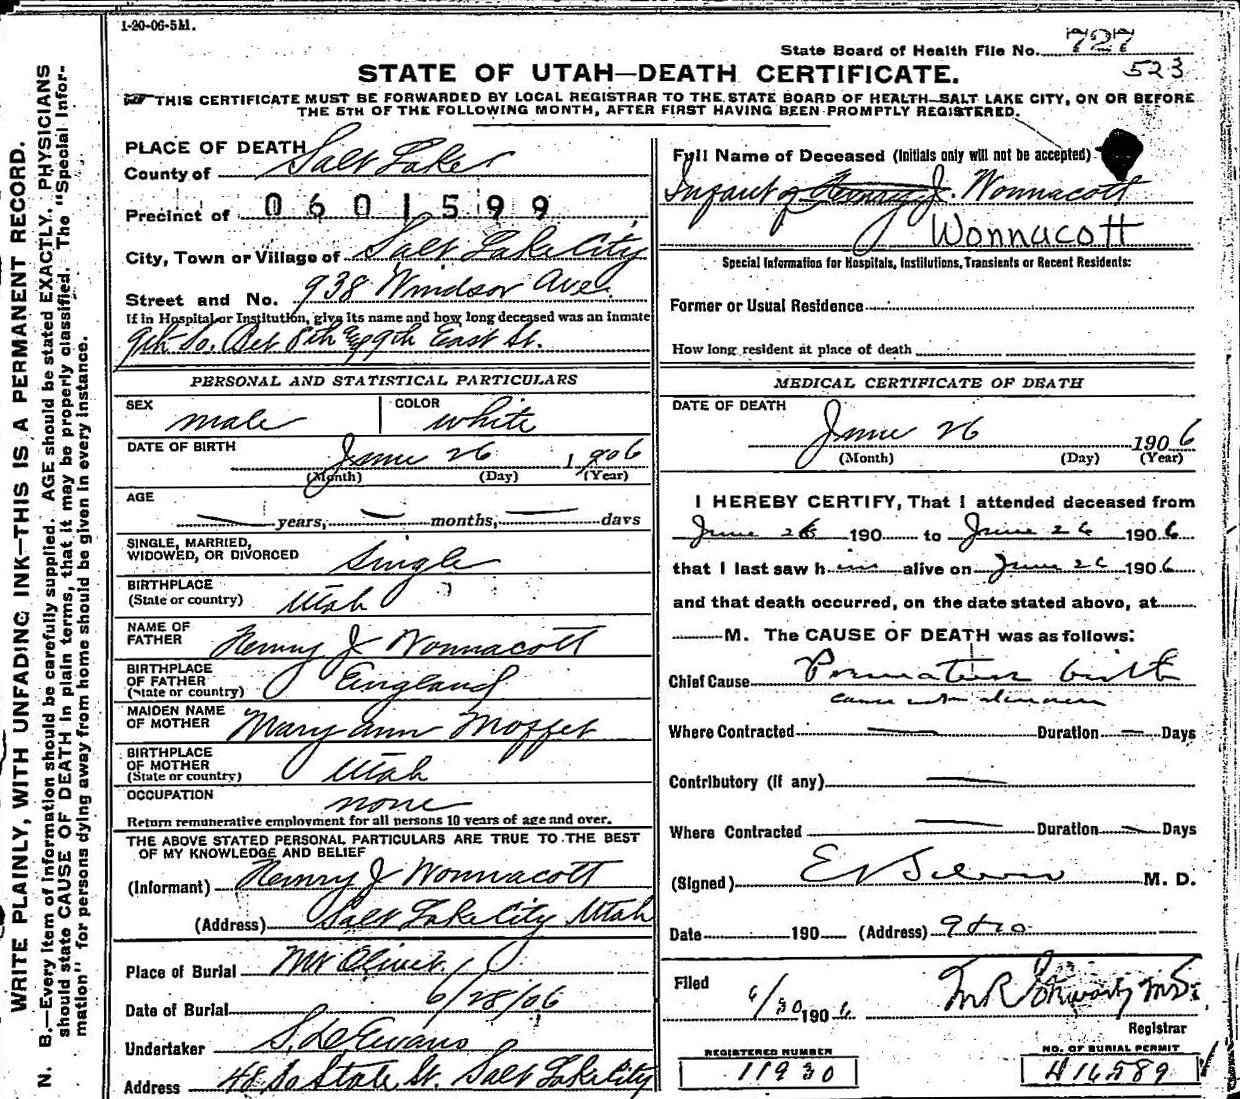 1-20-06-5M.
State Board of Health File No. 727
523
STATE OF UTAH—DEATH CERTIFICATE.
THIS CERTIFICATE MUST BE FORWARDED BY LOCAL REGISTRAR TO THE STATE BOARD OF HEALTH—SALT LAKE CITY, ON OR BEFORE
THE 5TH OF THE FOLLOWING MONTH, AFTER FIRST HAVING BEEN PROMPTLY REGISTERED.
WRITE PLAINLY, WITH UNFADING INK—THIS IS A PERMANENT RECORD.
N. B.—Every item of information should be carefully supplied. AGE should be stated EXACTLY. PHYSICIANS
should state CAUSE OF DEATH in plain terms, that it may be properly classified. The "Special Infor-
mation" for persons dying away from home should be given in every instance.
PLACE OF DEATH
County of Salt Lake
Precinct of 0601599
City, Town or Village of Salt Lake City
Street and No. 938 Windsor Ave.
If in Hospital or Institution, give its name and how long deceased was an inmate
9th So. Bet 8th & 9th East St.
PERSONAL AND STATISTICAL PARTICULARS
SEX male COLOR white
DATE OF BIRTH June 26 1906
(Month) (Day) (Year)
AGE
— years, — months, — days
SINGLE, MARRIED,
WIDOWED, OR DIVORCED Single
BIRTHPLACE
(State or country) Utah
NAME OF
FATHER Henry J Wonnacott
BIRTHPLACE
OF FATHER
(State or country) England
MAIDEN NAME
OF MOTHER Mary Ann Moffet
BIRTHPLACE
OF MOTHER
(State or country) Utah
OCCUPATION none
Return remunerative employment for all persons 10 years of age and over.
THE ABOVE STATED PERSONAL PARTICULARS ARE TRUE TO THE BEST
OF MY KNOWLEDGE AND BELIEF
(Informant) Henry J Wonnacott
(Address) Salt Lake City Utah
Place of Burial Mt Olivet
Date of Burial 6/28/06
Undertaker S. D. Evans
Address 48 So State St. Salt Lake City
Full Name of Deceased (Initials only will not be accepted)
Infant of Henry J. Wonnacott
Wonnacott
Special Information for Hospitals, Institutions, Transients or Recent Residents:
Former or Usual Residence
How long resident at place of death
MEDICAL CERTIFICATE OF DEATH
DATE OF DEATH
June 26 1906
(Month) (Day) (Year)
I HEREBY CERTIFY, That I attended deceased from
June 26 190 to June 26 1906
that I last saw him alive on June 26 1906
and that death occurred, on the date stated above, at
M. The CAUSE OF DEATH was as follows:
Chief Cause Premature birth
cause unknown
Where Contracted — Duration — Days
Contributory (if any) —
Where Contracted — Duration — Days
(Signed) M. D.
Date 190 (Address)
Filed 6/30 1906 M R
Registrar
REGISTERED NUMBER
11930
NO. OF BURIAL PERMIT
A16589